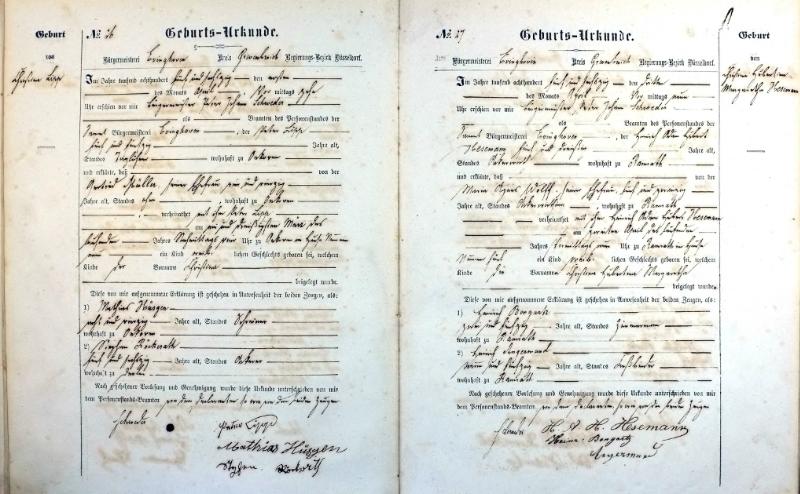 Geburt
von
Christina Lipp
№ 26
Geburts-Urkunde.
Bürgermeisterei Evinghoven Kreis Grevenbroich Regierungs-Bezirk Düsseldorf.
Im Jahre tausend achthundert fünf und sechzig den ersten
des Monats April Vor mittags zehn
Uhr erschien vor mir Bürgermeister Peter Johann Schwedu
als Beamten des Personenstandes der
Bürgermeisterei Evinghoven, der Peter Lipp
fünf und fünfzig Jahre alt,
Standes wohnhaft zu Oekoven
und erklärte, daß von der
Gertrud Müller, seiner Ehefrau, ein und vierzig
Jahre alt, Standes ohne wohnhaft zu Oekoven
, verheirathet mit dem Peter Lipp
am ein und dreißigsten März des
laufenden Jahres Nachmittags Uhr zu Oekoven im Hause Numero
ein Kind weib lichen Geschlechts geboren sei, welchem
Kinde der Vorname Christina
beigelegt wurde.
Diese von mir aufgenommene Erklärung ist geschehen in Anwesenheit der beiden Zeugen, als:
1) Mathias Hüsgen
acht und vierzig Jahre alt, Standes Schreiner
wohnhaft zu Oekoven
2) Stephan
fünf und sechzig Jahre alt, Standes Ackerer
wohnhaft zu
Nach geschehener Vorlesung und Genehmigung wurde diese Urkunde unterschrieben von mir
dem Personenstands-Beamten, von dem Declaranten, so wie von den beiden Zeugen
Peter Lipp
Mathias Hüsgen
Stephan
№ 27
Geburts-Urkunde.
Bürgermeisterei Evinghoven Kreis Grevenbroich Regierungs-Bezirk Düsseldorf.
Im Jahre tausend achthundert fünf und sechzig den dritten
des Monats April Vor mittags neun
Uhr erschien vor mir Bürgermeister Peter Johann Schwedu
als Beamten des Personenstandes der
Bürgermeisterei Evinghoven, der Heinrich Adam Hubert
Hesemann fünf und dreißig Jahre alt,
Standes Ackerwirth wohnhaft zu Ramrath
und erklärte, daß von der
Maria Agnes Wolff, seiner Ehefrau, fünf und zwanzig
Jahre alt, Standes Ackerwirthin wohnhaft zu Ramrath
, verheirathet mit dem Heinrich Adam Hubert Hesemann
am zweiten April des laufenden
Jahres Vormittags neun Uhr zu Ramrath im Hause
Numero fünf ein Kind weib lichen Geschlechts geboren sei, welchem
Kinde die Vornamen Christina Hubertina Margaretha
beigelegt wurde.
Diese von mir aufgenommene Erklärung ist geschehen in Anwesenheit der beiden Zeugen, als:
1) Heinrich Bongartz
und fünfzig Jahre alt, Standes Zimmermann
wohnhaft zu Ramrath
2) Heinrich
neun und fünfzig Jahre alt, Standes
wohnhaft zu Ramrath
Nach geschehener Vorlesung und Genehmigung wurde diese Urkunde unterschrieben von mir
dem Personenstands-Beamten, von dem Declaranten, so wie von den beiden Zeugen
H. A. H. Hesemann
Heinr. Bongartz
Geburt
von
Christina Hubertina
Margaretha Hesemann